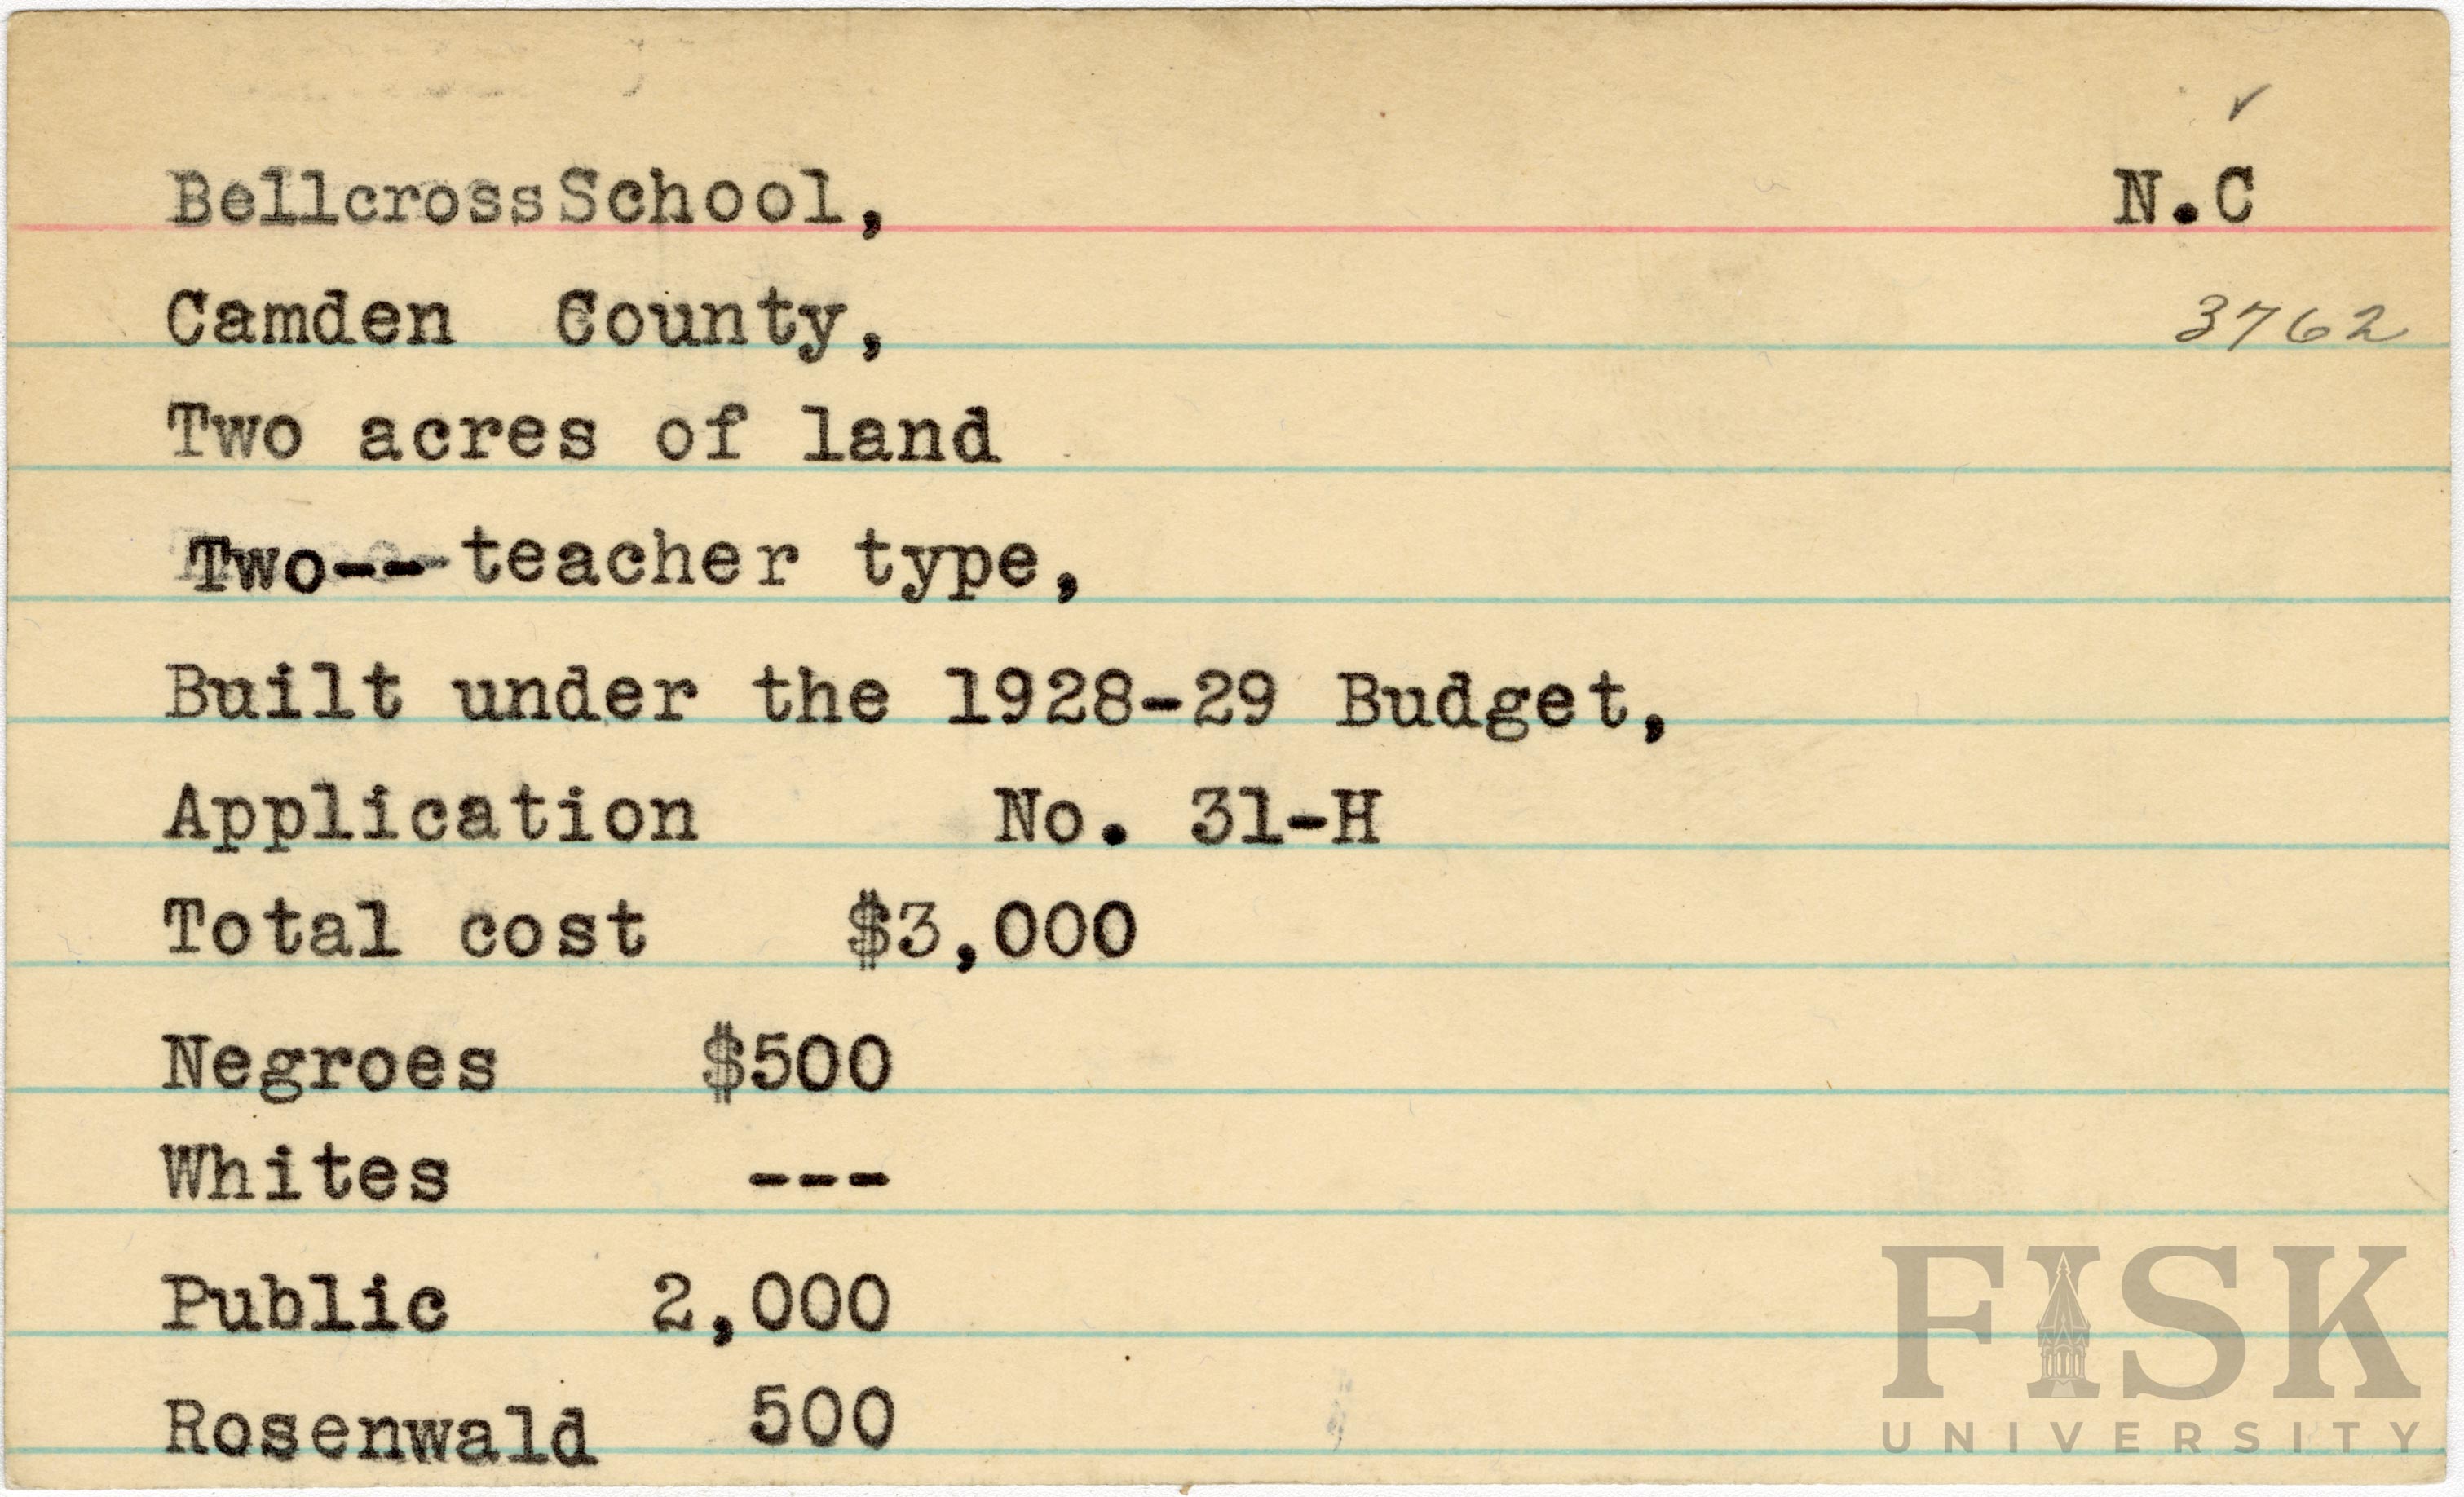 ✓
Bellcross School, N.C
Camden County, 3762
Two acres of land
Two--teacher type,
Built under the 1928-29 Budget,
Application No. 31-H
Total cost $3,000
Negroes $500
Whites ---
Public 2,000
Rosenwald 500
FISK
UNIVERSITY